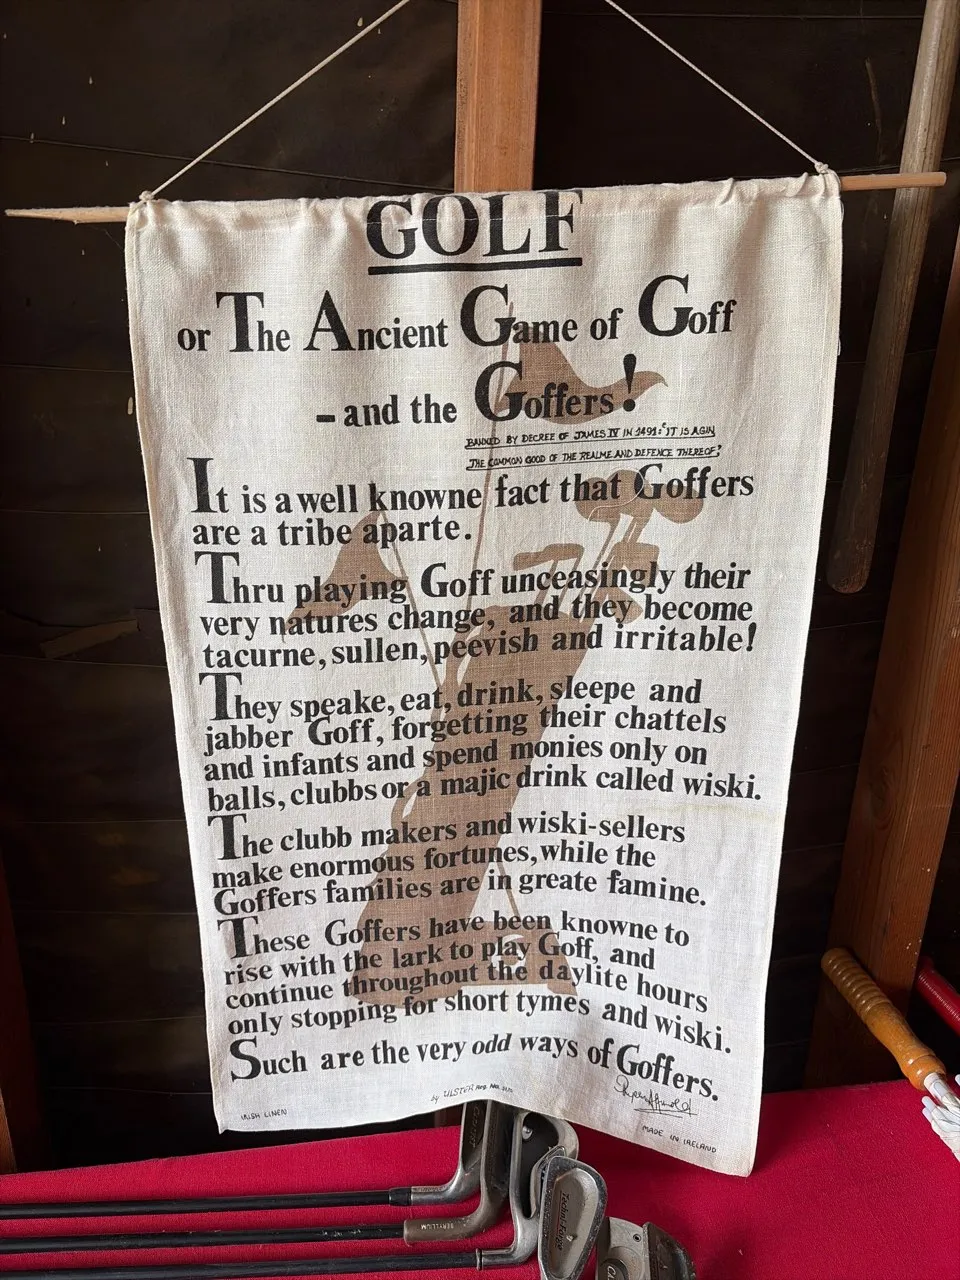 GOLF
or The Ancient Game of Goff
- and the Goffers!
BANNED BY DECREE OF JAMES IV IN 1491: "IT IS AGIN
THE COMMON GOOD OF THE REALME AND DEFENCE THEREOF"
It is a well knowne fact that Goffers
are a tribe aparte.
Thru playing Goff unceasingly their
very natures change, and they become
tacurne, sullen, peevish and irritable!
They speake, eat, drink, sleepe and
jabber Goff, forgetting their chattels
and infants and spend monies only on
balls, clubbs or a majic drink called wiski.
The clubb makers and wiski-sellers
make enormous fortunes, while the
Goffers families are in greate famine.
These Goffers have been knowne to
rise with the lark to play Goff, and
continue throughout the daylite hours
only stopping for short tymes and wiski.
Such are the very odd ways of Goffers.
IRISH LINEN
by ULSTER
MADE IN IRELAND
BERYLLIUM